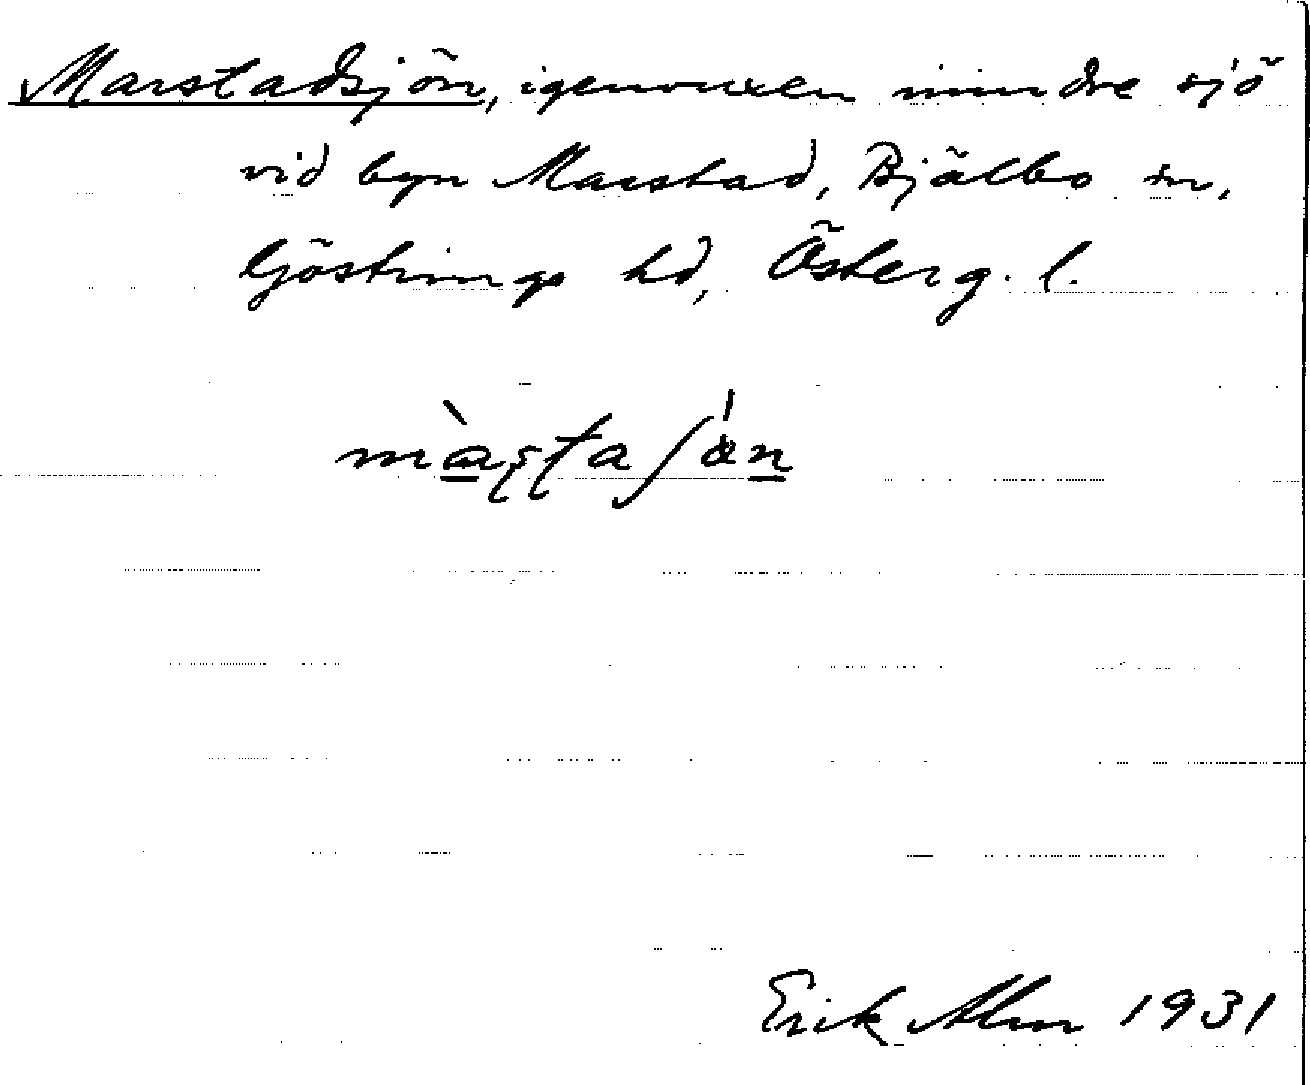 Marstadsjön, igenvuxen mindre sjö
vid byn Marstad, Bjälbo sn,
Göstrings hd, Österg. l.
Erik Alm 1931